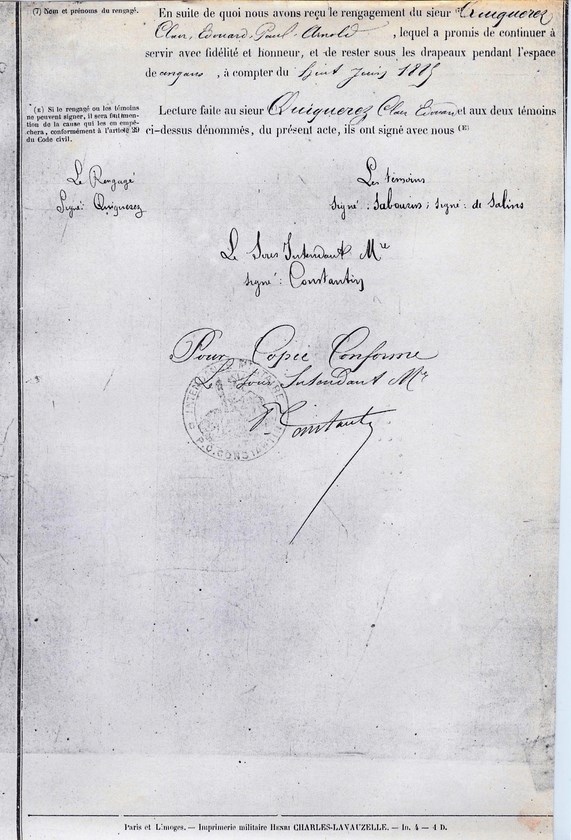 (7) Nom et prénoms du rengagé.
En suite de quoi nous avons reçu le rengagement du sieur Quiquerez
Clair, Edouard, Paul, Arnold, lequel a promis de continuer à
servir avec fidélité et honneur, et de rester sous les drapeaux pendant l'espace
de cinq ans, à compter du huit Juin 1885
(8) Si le rengagé ou les témoins
ne peuvent signer, il sera fait men-
tion de la cause qui les en empê-
chera, conformément à l'article 39
du Code civil.
Lecture faite au sieur Quiquerez Clair Edouard et aux deux témoins
ci-dessus dénommés, du présent acte, ils ont signé avec nous (8)
Le Rengagé
Signé: Quiquerez
Les témoins
signé: Sabourin; signé: de Salins
Le Sous Intendant Mre
signé: Constantin
Pour Copie Conforme
Le Sous Intendant Mre
Constantin
Paris et Limoges. — Imprimerie militaire HENRI CHARLES-LAVAUZELLE. — In. 4 — 4 D.